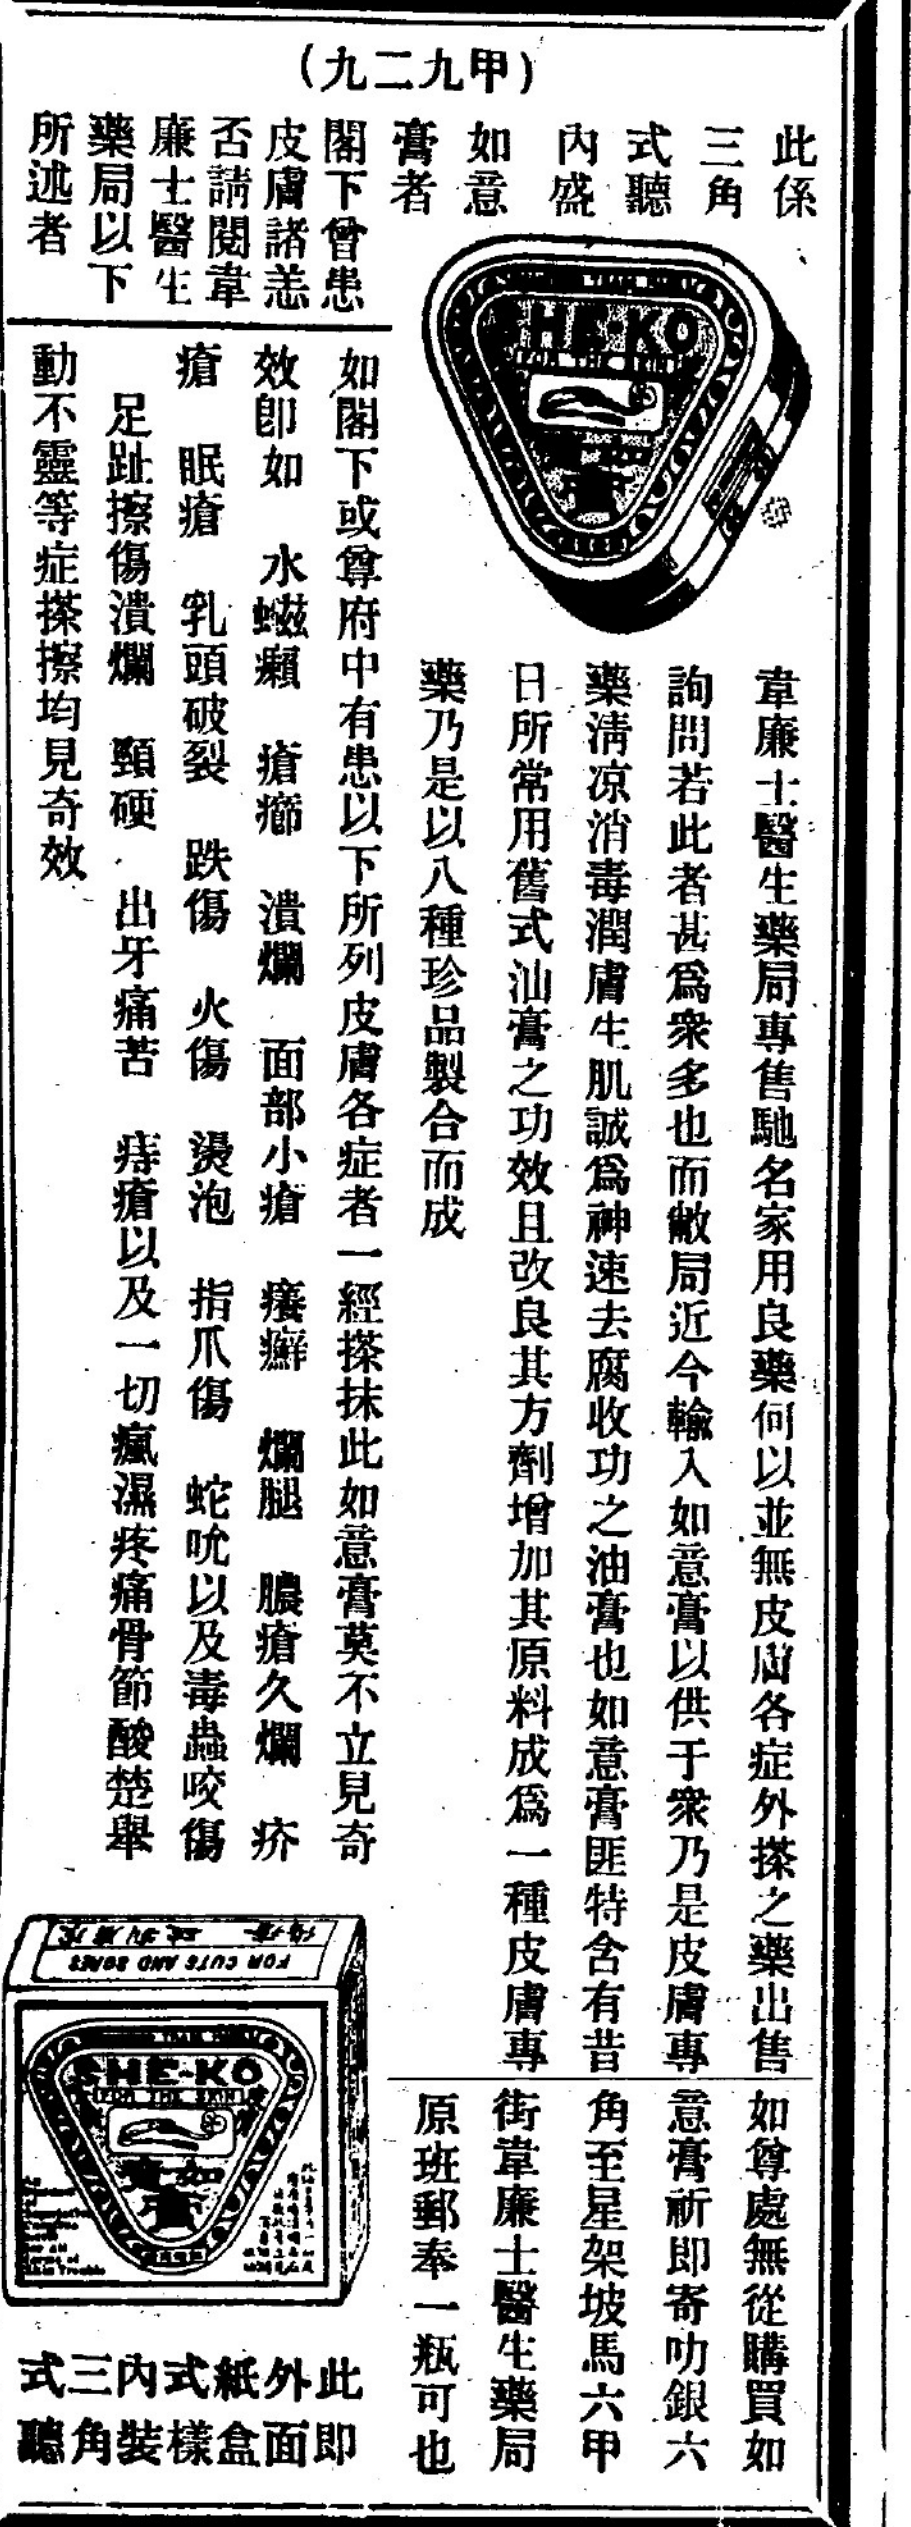 （甲九二九）
此係
三角
式聽
內盛
如意
膏者
SHE-KO
FOR THE SKIN
如意
膏
閣下曾患
皮膚諸恙
否請閱韋
廉士醫生
藥局以下
所述者
韋廉士醫生藥局專售馳名家用良藥何以並無皮膚各症外搽之藥出售
詢問若此者甚爲衆多也而敝局近今輸入如意膏以供于衆乃是皮膚專
藥淸凉消毒潤膚生肌誠爲神速去腐收功之油膏也如意膏匪特含有昔
日所常用舊式油膏之功效且改良其方劑增加其原料成爲一種皮膚專
藥乃是以八種珍品製合而成
如閣下或尊府中有患以下所列皮膚各症者一經搽抹此如意膏莫不立見奇
效卽如 水蟣癩 瘡癤 潰爛 面部小瘡 癢癬 爛腿 膿瘡久爛 疥
瘡 眠瘡 乳頭破裂 跌傷 火傷 燙泡 指爪傷 蛇吮以及毒蟲咬傷
足趾擦傷潰爛 頸硬 出牙痛苦 痔瘡以及一切瘋濕疼痛骨節酸楚舉
動不靈等症搽擦均見奇效
如尊處無從購買如
意膏祈即寄叻銀六
角至星架坡馬六甲
街韋廉士醫生藥局
原班郵奉一瓶可也
FOR CUTS AND SORES
SHE-KO
FOR THE SKIN
如意
膏
此即
外面
紙盒
式樣
內裝
三角
式聽